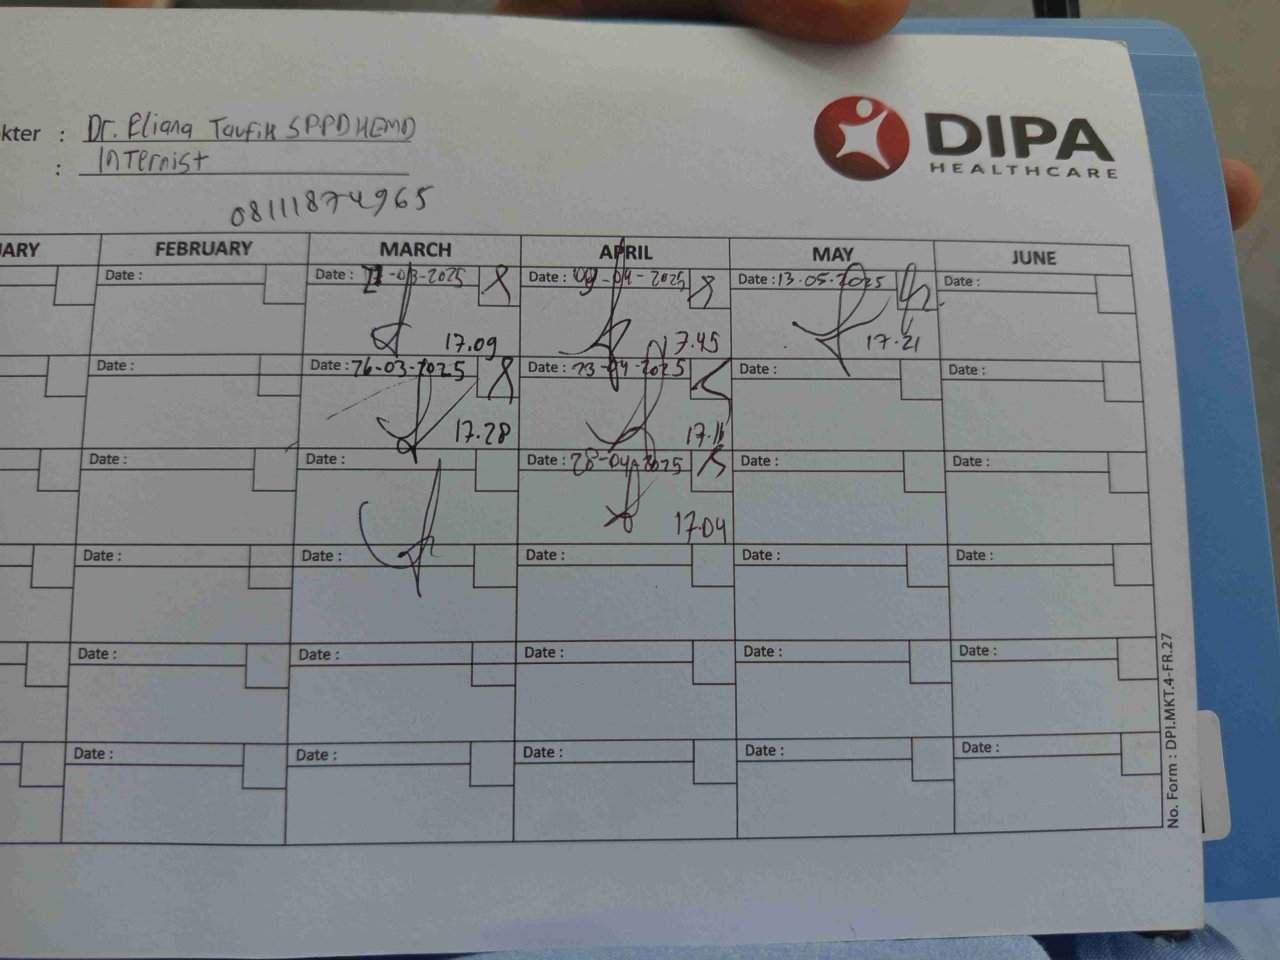 kter : Dr. Eliana Taufik SPPDHEMD
: Internist
08111874965
DIPA
HEALTHCARE
UARY FEBRUARY MARCH APRIL MAY JUNE
Date : Date : -03-2025 Date : 09-04-2025 Date : 13.05.2025 Date :
17.09 17.45 17.21
Date : Date : 26-03-2025 Date : 23-04-2025 Date : Date :
17.28 17.11
Date : Date : Date : 28-04-2025 Date : Date :
17.04
Date : Date : Date : Date : Date :
Date : Date : Date : Date : Date :
Date : Date : Date : Date : Date :
No. Form : DPI.MKT.4-FR.27